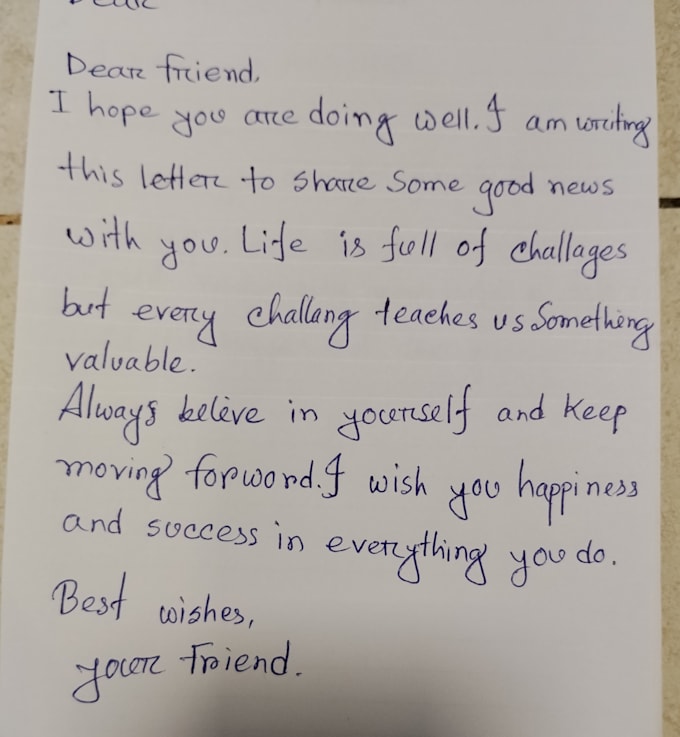 Dear
Dear friend,
I hope you are doing well. I am writing
this letter to share some good news
with you. Life is full of challages
but every challang teaches us something
valuable.
Always beleve in yourself and keep
moving forword. I wish you happiness
and success in everything you do.
Best wishes,
your friend.